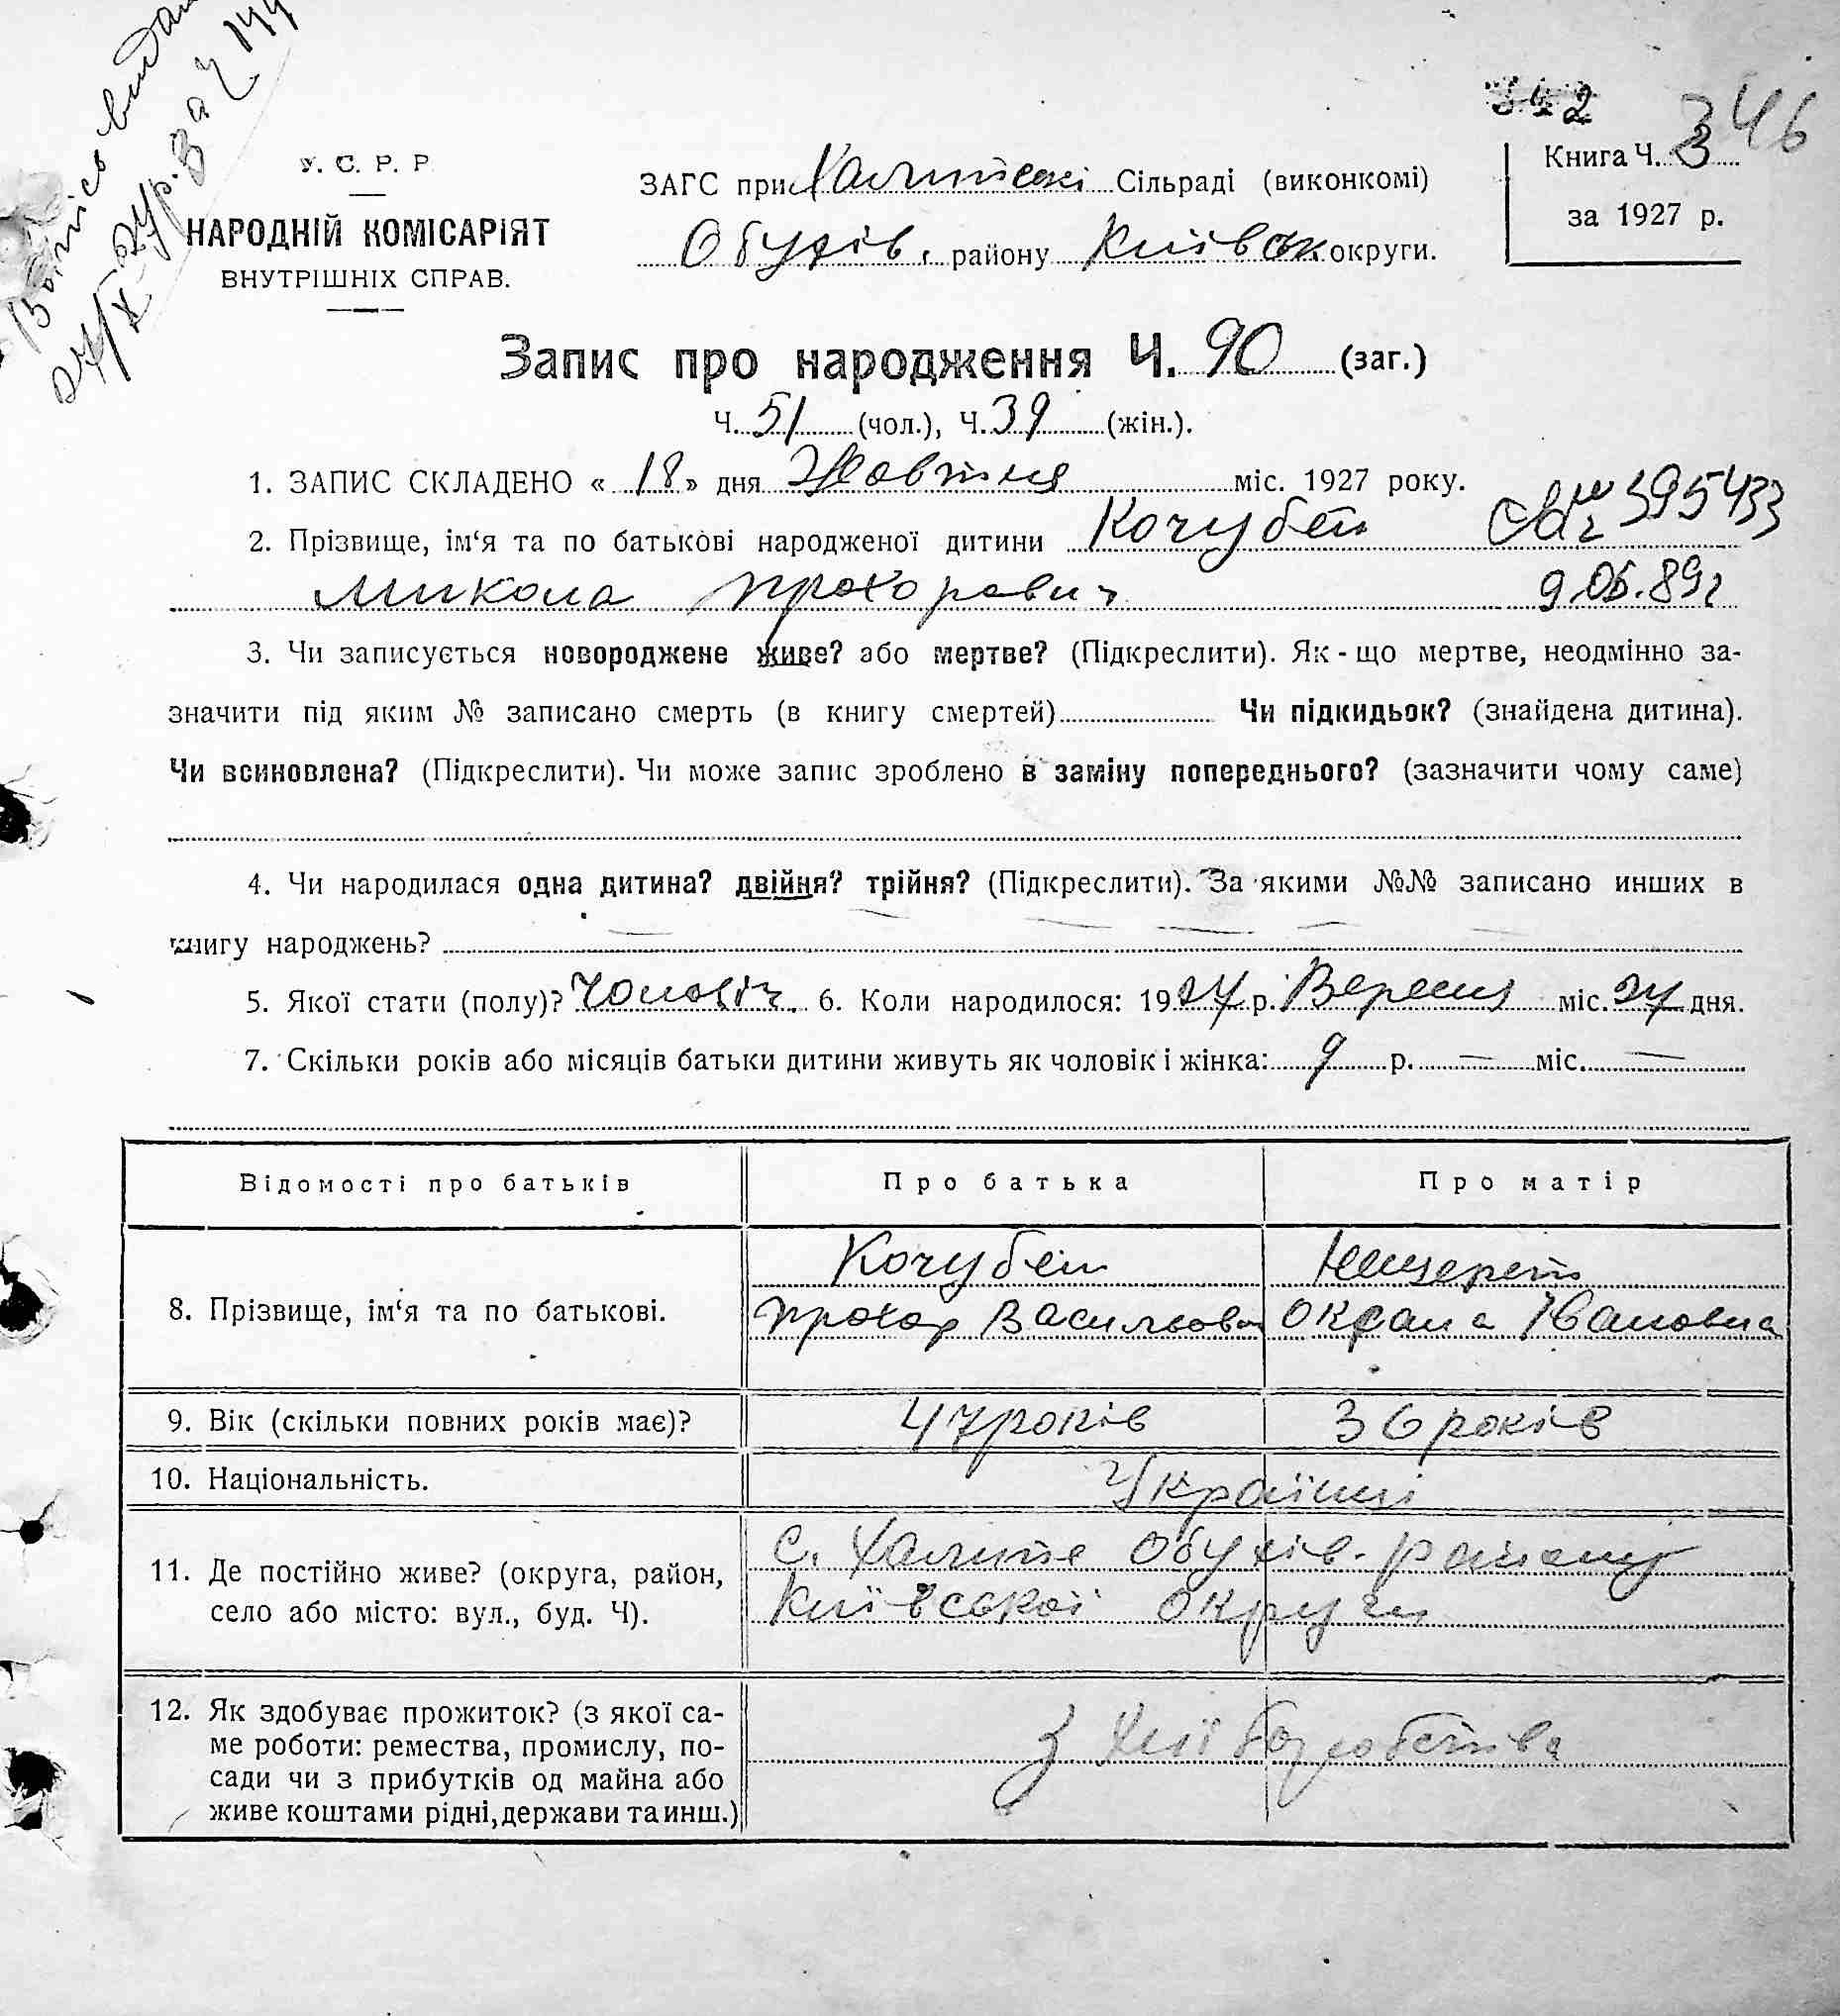 Випись видан
27/X 27р. за Ч 144
342 346
У. С. Р. Р.
НАРОДНІЙ КОМІСАРІЯТ
ВНУТРІШНІХ СПРАВ.
ЗАГС при Халипській Сільраді (виконкомі)
Обухів. району Київськ округи.
Книга Ч. 3
за 1927 р.
Запис про народження Ч. 90 (заг.)
Ч. 51 (чол.), Ч. 39 (жін.).
1. ЗАПИС СКЛАДЕНО « 18 » дня Жовтня міс. 1927 року.
2. Прізвище, ім‘я та по батькові народженої дитини Кочубей 395433
Микола Прохорович 9.06.89г
3. Чи записується новороджене живе? або мертве? (Підкреслити). Як - що мертве, неодмінно за-
значити під яким № записано смерть (в книгу смертей) Чи підкидьок? (знайдена дитина).
Чи всиновлена? (Підкреслити). Чи може запис зроблено в заміну попереднього? (зазначити чому саме)
4. Чи народилася одна дитина? двійня? трійня? (Підкреслити). За якими №№ записано инших в
книгу народжень?
5. Якої стати (полу)? Чоловіч. 6. Коли народилося: 1927 р. Вересня міс. 27 дня.
7. Скільки років або місяців батьки дитини живуть як чоловік і жінка: 9 р. — міс. —
Відомості про батьків Про батька Про матір
8. Прізвище, ім‘я та по батькові.
Кочубей
Прохор Васильович
Нещерет
Оксана Івановна
9. Вік (скільки повних років має)? 47 років 36 років
10. Національність. Українці
11. Де постійно живе? (округа, район,
село або місто: вул., буд. Ч).
с. Халипе Обухів. району
Київської округи
12. Як здобуває прожиток? (з якої са-
ме роботи: ремества, промислу, по-
сади чи з прибутків од майна або
живе коштами рідні, держави та инш.)
З хліборобства